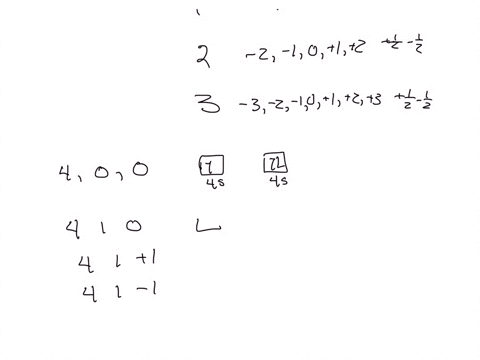 2 -2, -1, 0, +1, +2 +1/2 -1/2
3 -3, -2, -1, 0, +1, +2, +3 +1/2 -1/2
4, 0, 0
4s 4s
4 1 0
4 1 +1
4 1 -1